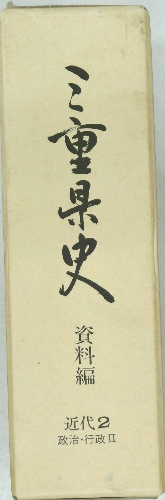 三重県史
資料編
近代2
政治・行政Ⅱ